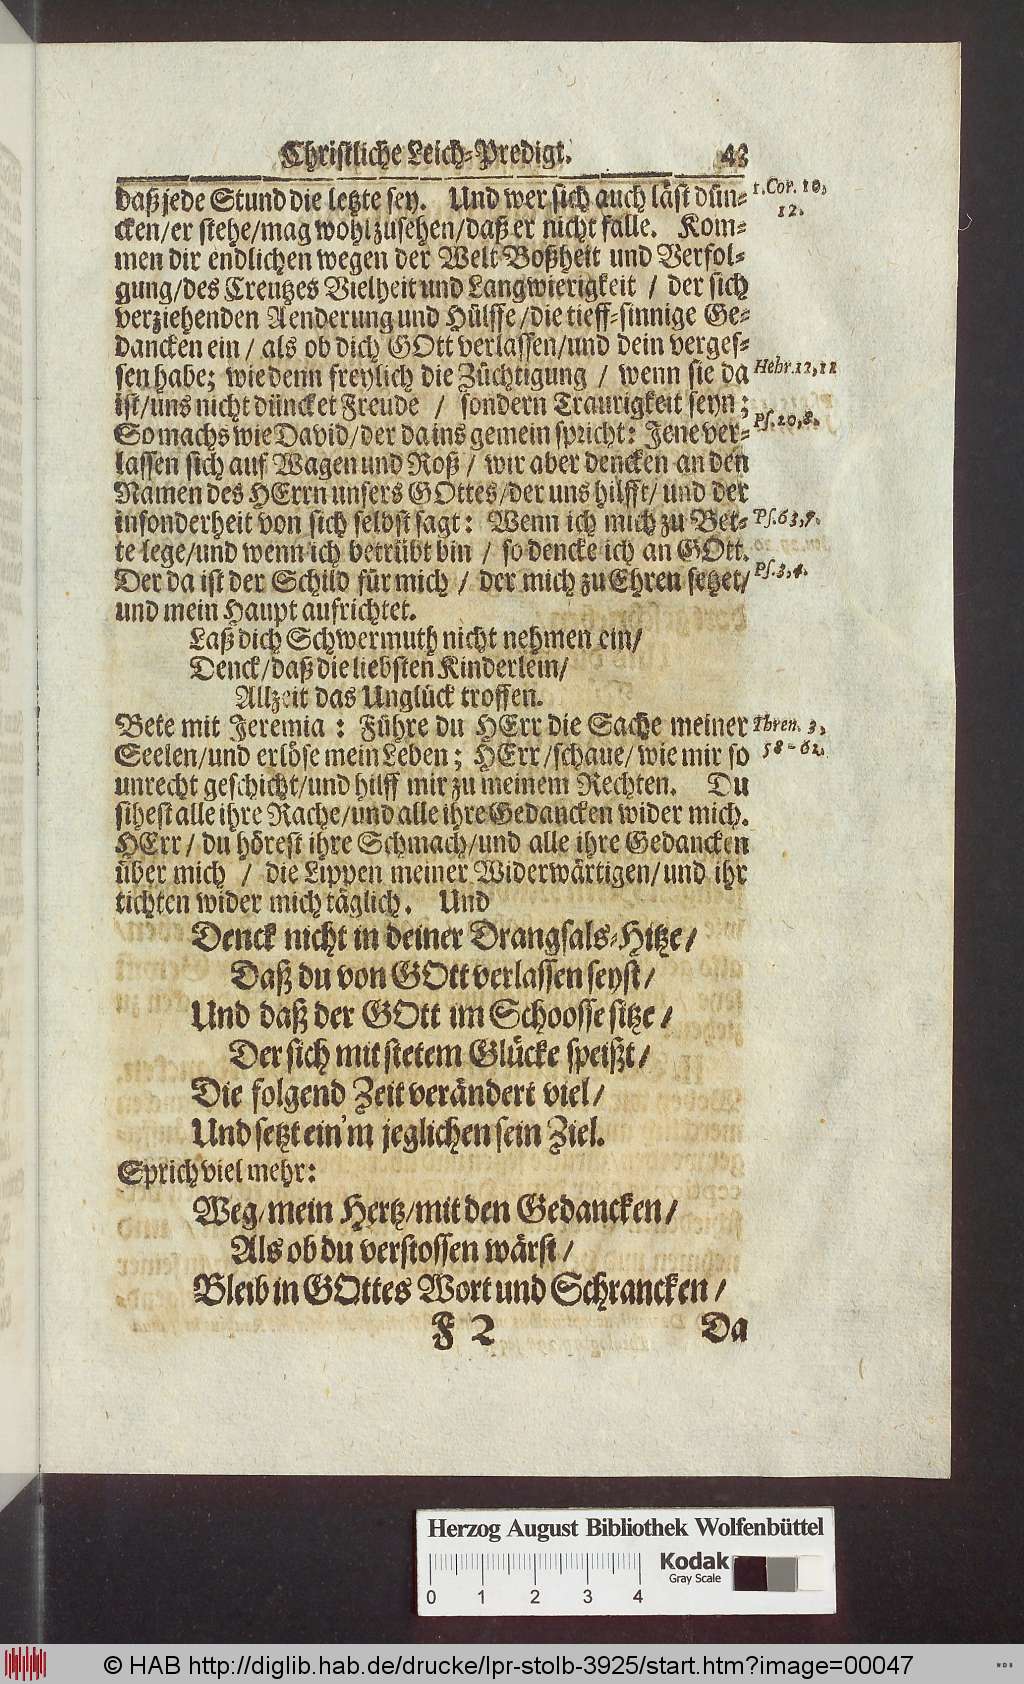 Christliche Leich-Predigt. 43
daß jede Stund die letzte sey. Und wer sich auch läst dün-
cken/er stehe/mag wohl zusehen/daß er nicht falle. Kom-
men dir endlichen wegen der Welt Boßheit und Verfol-
gung/des Creutzes Vielheit und Langwierigkeit / der sich
verziehenden Aenderung und Hülffe/die tieff-sinnige Ge-
dancken ein / als ob dich GOtt verlassen/und dein verges-
sen habe; wie denn freylich die Züchtigung / wenn sie da
ist/uns nicht düncket Freude / sondern Traurigkeit seyn;
So machs wie David/der da ins gemein spricht: Jene ver-
lassen sich auf Wagen und Roß / wir aber dencken an den
Namen des HErrn unsers GOttes/der uns hilfft/ und der
insonderheit von sich selbst sagt: Wenn ich mich zu Bet-
te lege/und wenn ich betrübt bin / so dencke ich an GOtt.
Der da ist der Schild für mich / der mich zu Ehren setzet/
und mein Haupt aufrichtet.
Laß dich Schwermuth nicht nehmen ein/
Denck/daß die liebsten Kinderlein/
Allzeit das Unglück troffen.
Bete mit Jeremia : Führe du HErr die Sache meiner
Seelen/und erlöse mein Leben; HErr/schaue/wie mir so
unrecht geschicht/und hilff mir zu meinem Rechten. Du
sihest alle ihre Rache/und alle ihre Gedancken wider mich.
HErr/ du hörest ihre Schmach/und alle ihre Gedancken
über mich / die Lippen meiner Widerwärtigen/und ihr
tichten wider mich täglich. Und
Denck nicht in deiner Drangsals-Hitze/
Daß du von GOtt verlassen seyst/
Und daß der GOtt im Schoosse sitze /
Der sich mit stetem Glücke speißt/
Die folgend Zeit verändert viel/
Und setzt ein'm jeglichen sein Ziel.
Sprich viel mehr:
Weg/mein Hertz/mit den Gedancken/
Als ob du verstossen wärst /
Bleib in GOttes Wort und Schrancken /
F 2 Da
1. Cor. 10,
12.
Hebr. 12, 11
Ps. 20, 8.
Ps. 63, 7.
Ps. 3, 4.
Thren. 3,
58-62.
Herzog August Bibliothek Wolfenbüttel
Kodak
Gray Scale
0 1 2 3 4
© HAB http://diglib.hab.de/drucke/lpr-stolb-3925/start.htm?image=00047